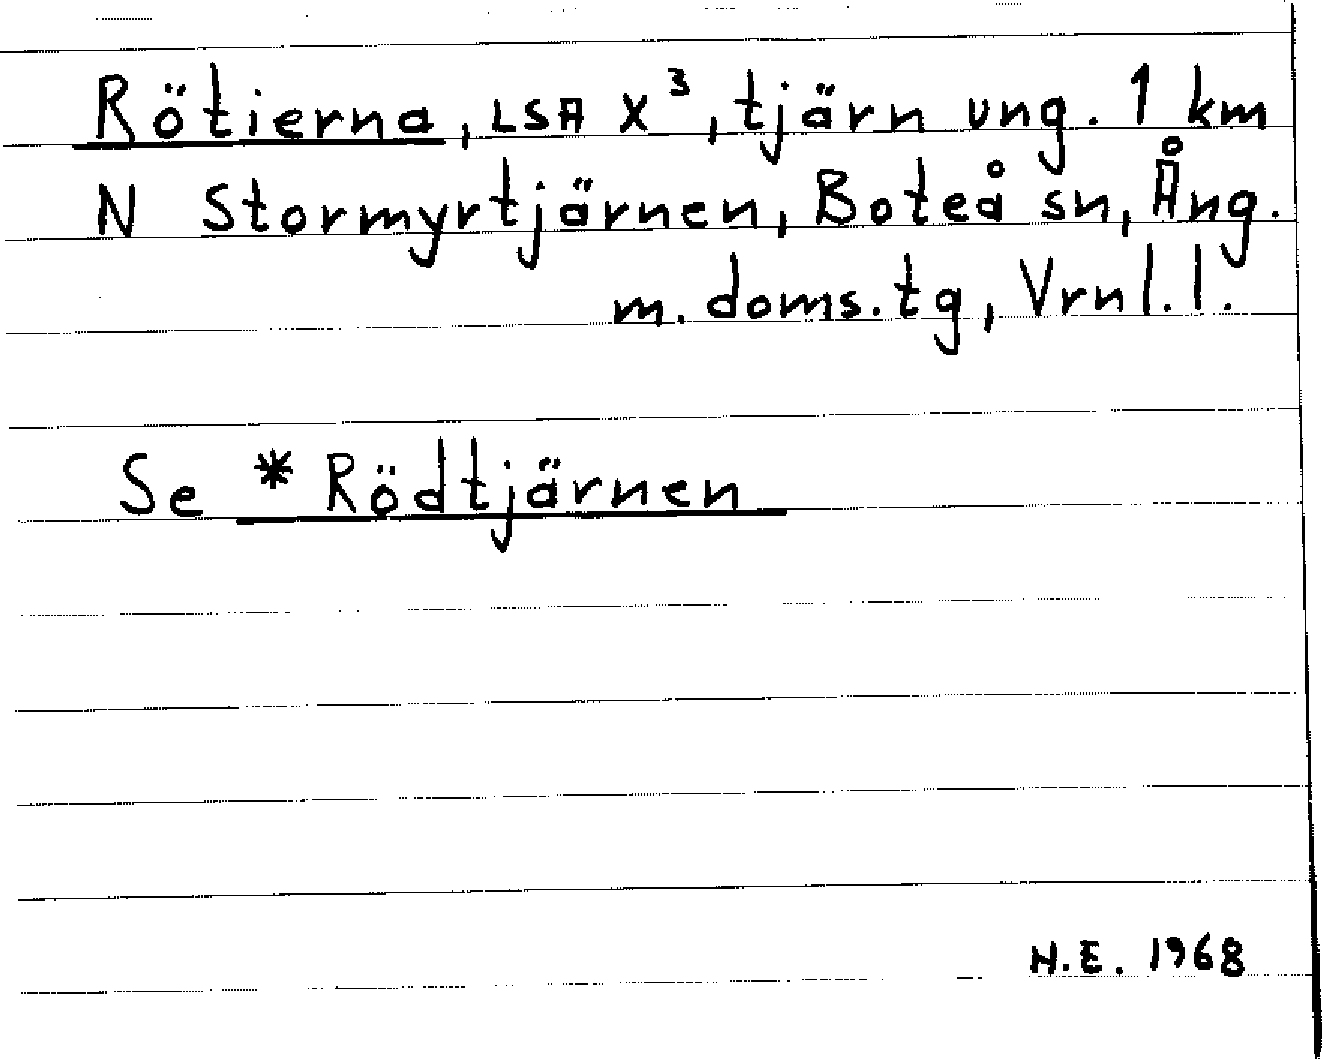 Rötierna, LSA X³, tjärn ung. 1 km
N Stormyrtjärnen, Boteå sn, Ång.
m. doms. tg, Vrnl. l.
Se * Rödtjärnen
H.E. 1968